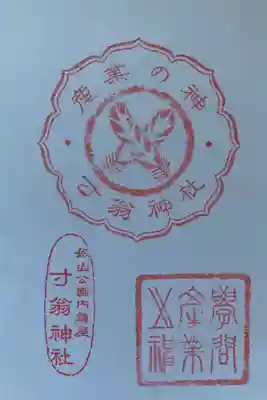 産業の神
寸翁神社
姫山公園内鎮座
寸翁神社
學問
産業
之祖